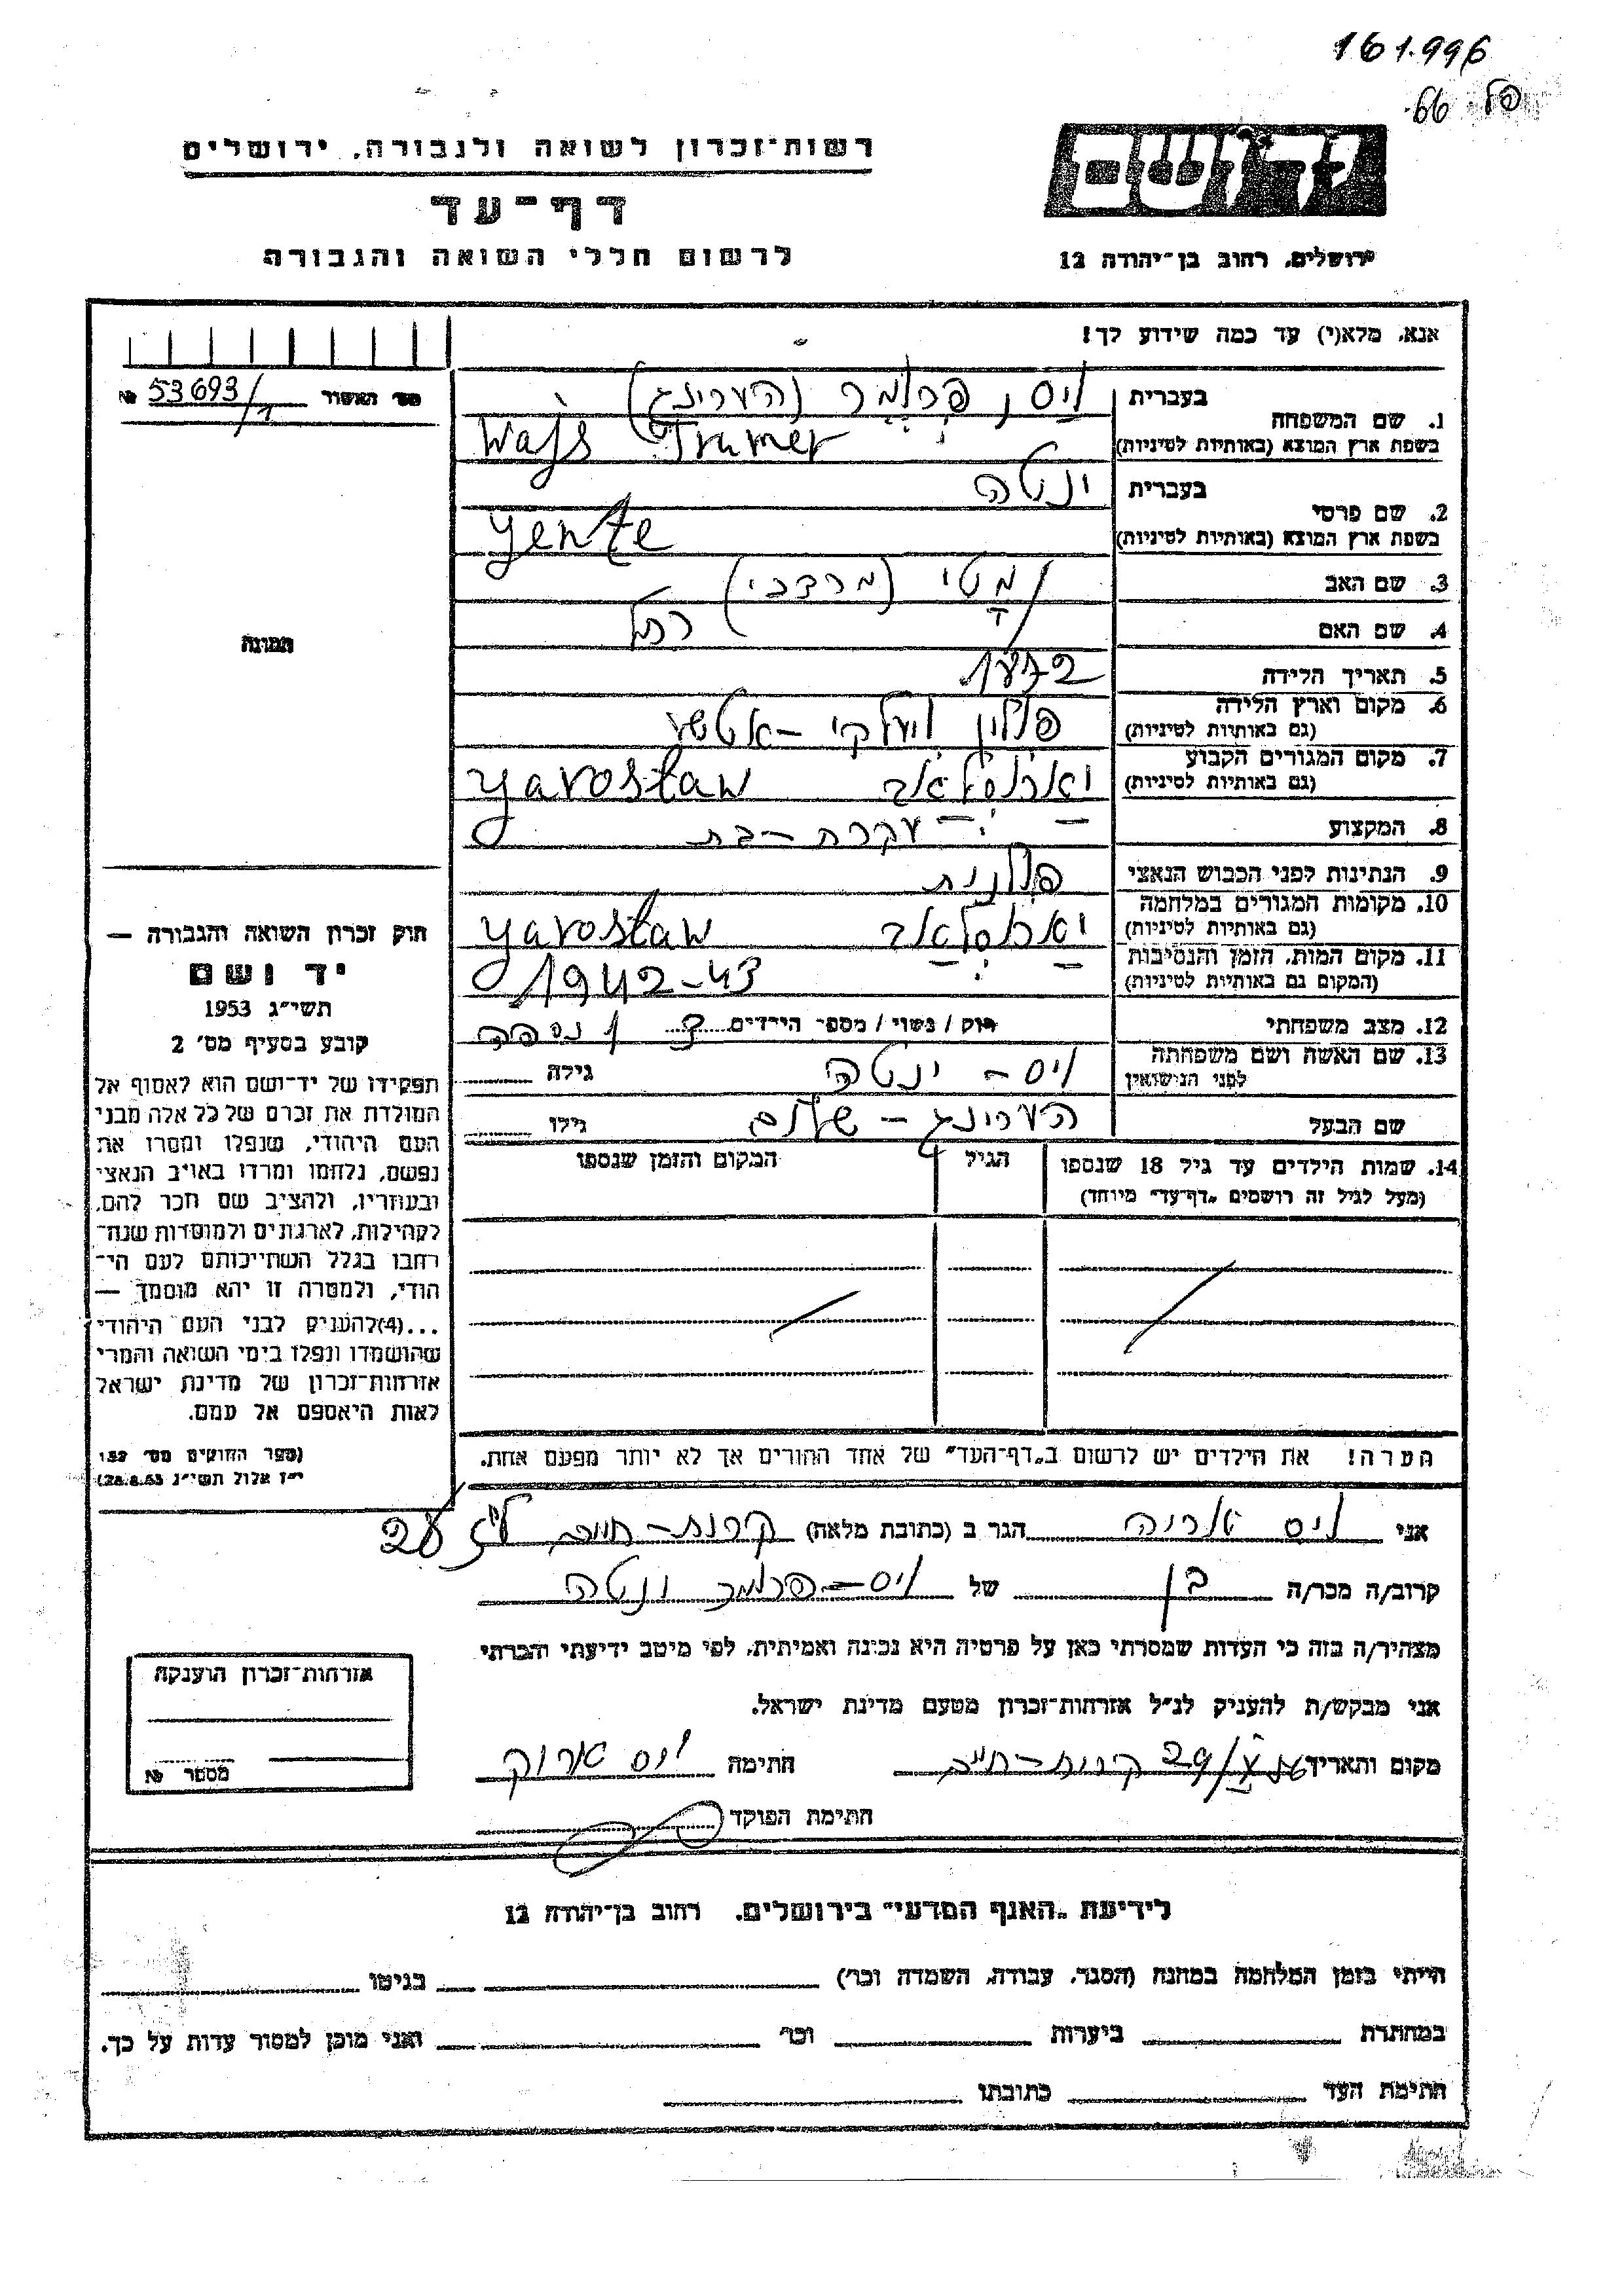 161996
רשות־זכרון לשואה ולגבורה, ירושלים
דף־עד
לרשום חללי השואה והגבורה
יד ושם
ירושלים, רחוב בן־יהודה 12
אנא, מלא(י) עד כמה שידוע לך!
מס׳ האשור 53693/1 №
1. שם המשפחה
בעברית
בשפת ארץ המוצא (באותיות לטיניות) Wajs
2. שם פרטי
בעברית ינטה
בשפת ארץ המוצא (באותיות לטיניות) yente
3. שם האב מטי (מרדכי)
4. שם האם רחל
5. תאריך הלידה 1872
6. מקום וארץ הלידה
(גם באותיות לטיניות) פולין
7. מקום המגורים הקבוע
(גם באותיות לטיניות) יארוסלאב yarosław
8. המקצוע עקרת-בת
9. הנתינות לפני הכבוש הנאצי פולנית
10. מקומות המגורים במלחמה
(גם באותיות לטיניות) יארוסלאב yarosław
11. מקום המות, הזמן והנסיבות
(המקום גם באותיות לטיניות) 1942-43
12. מצב משפחתי רוק / נשוי / מספר הילדים
13. שם האשה ושם משפחתה
לפני הנישואין ויס - ינטה גילה
שם הבעל הערינג - שלום גילו
14. שמות הילדים עד גיל 18 שנספו
(מעל לגיל זה רושמים „דף־עד״ מיוחד)
הגיל
המקום והזמן שנספו
הערה! את הילדים יש לרשום ב„דף־העד״ של אחד ההורים אך לא יותר מפעם אחת.
תמונה
חוק זכרון השואה והגבורה —
יד ושם
תשי״ג 1953
קובע בסעיף מס׳ 2
תפקידו של יד־ושם הוא לאסוף אל
המולדת את זכרם של כל אלה מבני
העם היהודי, שנפלו ומסרו את
נפשם, נלחמו ומרדו באויב הנאצי
ובעוזריו, ולהציב שם וזכר להם,
לקהילות, לארגונים ולמוסדות שנח־
רחבו בגלל השתייכותם לעם הי־
הודי, ולמטרה זו יהא מוסמך —
...(4)להעניק לבני העם היהודי
שהושמדו ונפלו בימי השואה והמרי
אזרחות־זכרון של מדינת ישראל
לאות היאספם אל עמם.
(ספר החוקים מס׳ 132
י״ז אלול תשי״ג 28.8.53)
אני ויס אריה הגר ב (כתובת מלאה) קרית-חיים 28
קרוב/ה מכר/ה בן של ויס-טרומר ינטה
מצהיר/ה בזה כי העדות שמסרתי כאן על פרטיה היא נכונה ואמיתית, לפי מיטב ידיעתי והכרתי
אני מבקש/ת להעניק לנ״ל אזרחות־זכרון מטעם מדינת ישראל.
מקום ותאריך קרית-חיים 29/X חתימה ויס
חתימת הפוקד
אזרחות־זכרון הוענקה
מספר №
לידיעת „האגף המדעי״ בירושלים, רחוב בן־יהודה 12
הייתי בזמן המלחמה במחנה (הסגר, עבודה, השמדה וכו׳) בגיטו
במחתרת ביערות וכו׳ ואני מוכן למסור עדות על כך.
חתימת העד כתובתו